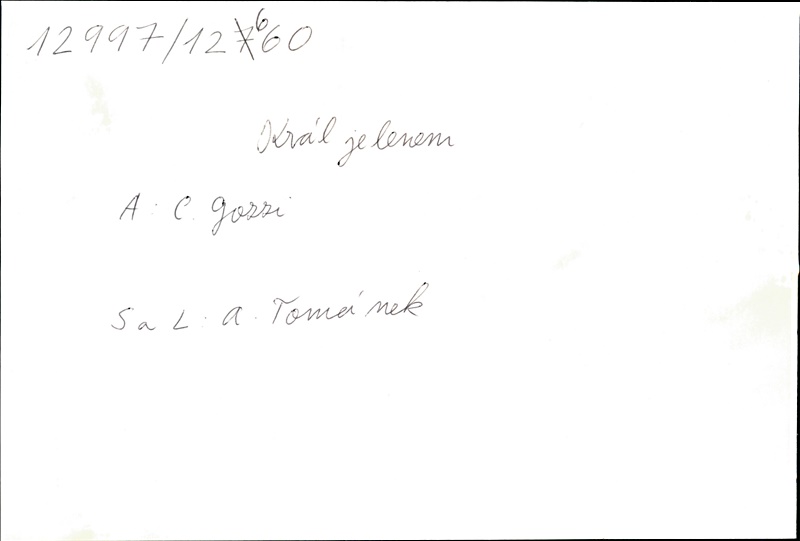 12997/12660
Král jelenem
A: C. Gozzi
S a L: A. Tománek